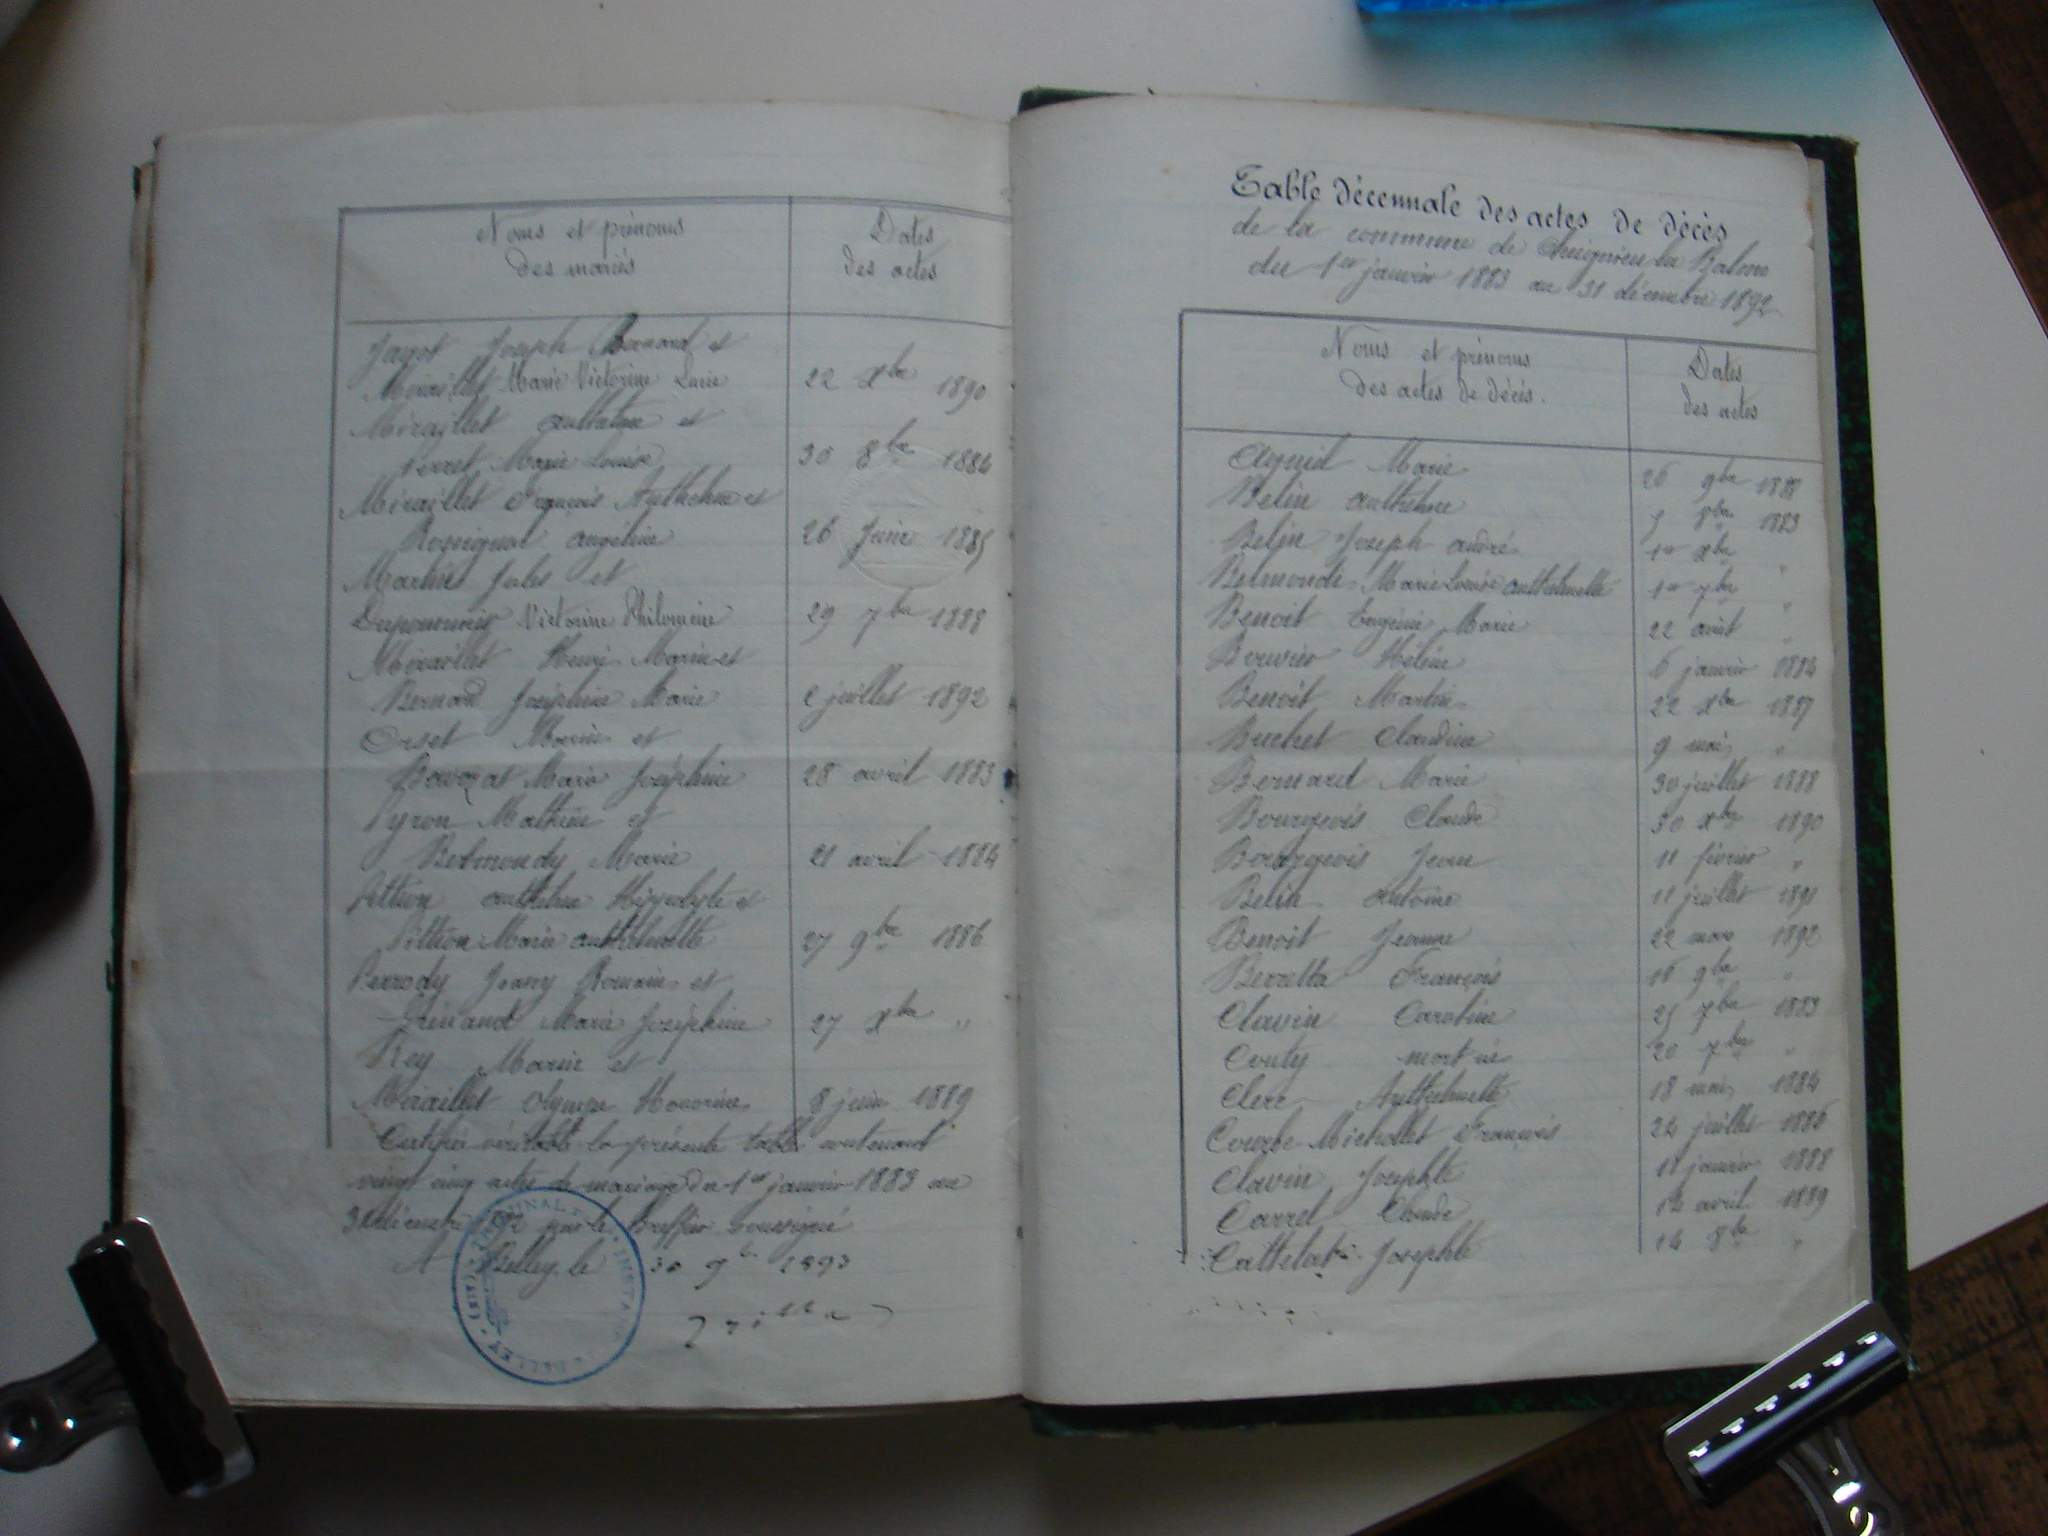 Noms et prénoms
des mariés
Dates
des actes
Jayot Joseph Bernard et
Miraillet Marie Victorine Lucie 22 Xbre 1890
Miraillet anthelme et
Perret Marie Louise 30 8bre 1884
Miraillet François Anthelme et
Rossignol angéline 26 Juin 1885
Martin Jules et
Victorine Philomène 29 7bre 1888
Miraillet Henri Marin et
Bernard Joséphine Marie 2 juillet 1892
Orset Marin et
Marie Joséphine 28 avril 1883
Pyron Mathieu et
Belmondy Marie 21 avril 1884
Pittion anthelme Hippolyte et
Pittion Marie anthelmette 27 9bre 1886
Perrody Joany Romain et
Marie Joséphine 27 Xbre "
Rey Marin et
Miraillet Olympe Honorine 8 juin 1889
Certifiée véritable la présente table contenant
vingt cinq actes de mariage du 1er janvier 1883 au
31 décembre 1892 par le Greffier soussigné
A Belley le 30 9bre 1893
Table décennale des actes de décès
de la commune de Chuignieu la Balme
du 1er janvier 1883 au 31 décembre 1892
Noms et prénoms
des actes de décès.
Dates
des actes
Marie 26 9bre 1888
Belin anthelme 5 8bre 1883
Belin Joseph andré 1er Xbre "
Belmonde Marie Louise anthelmette 1er 7bre "
Benoit Eugénie Marie 22 août "
Bouvier Hélène 6 janvier 1884
Benoit Martin 22 Xbre 1887
Buchet Claudine 9 mai "
Bernard Marie 30 juillet 1888
Bourgeois Claude 30 Xbre 1890
Bourgeois Jean 11 février "
Belin Antoine 11 juillet 1891
Benoit Jeanne 22 mars 1892
Berretta François 16 9bre "
Clavin Caroline 25 7bre 1883
Couty mort né 20 7bre "
Clerc Anthelmette 18 mai 1884
Courbe Michollet François 24 juillet 1886
Clavin Josephte 18 janvier 1888
Carrel Claude 14 avril 1889
Cattelat Josephte 14 8bre "